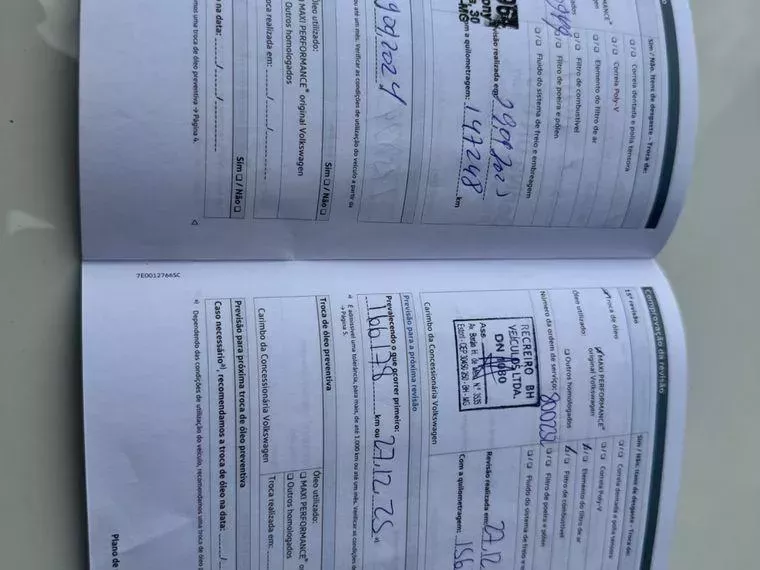 Sim / Não. Itens de desgaste - Troca de:
❑/❑ Correia dentada e polia tensora
❑/❑ Correia Poly-V
❑/❑ Elemento do filtro de ar
❑/❑ Filtro de combustível
❑/❑ Filtro de poeira e pólen
❑/❑ Fluido do sistema de freio e embreagem
Com a quilometragem: 147248 km
ou até um mês. Verificar as condições de utilização do veículo a partir da
Óleo utilizado:
MAXI PERFORMANCE® original Volkswagen
❑ Outros homologados
Troca realizada em: ....../....../......
Sim ❑ / Não ❑
Sim ❑ / Não ❑
o na data: ....../....../......
mos uma troca de óleo preventiva → Página 4.
7E0012766SC
Comprovação da revisão
15ª revisão
Troca de óleo
Óleo utilizado:
MAXI PERFORMANCE®
original Volkswagen
❑ Outros homologados
Número da ordem de serviço:
Sim / Não. Itens de desgaste - Troca de:
❑/❑ Correia dentada e polia tensora
❑/❑ Correia Poly-V
❑/❑ Elemento do filtro de ar
❑/❑ Filtro de combustível
❑/❑ Filtro de poeira e pólen
❑/❑ Fluido do sistema de freio e
RECREIO BH
VEÍCULOS LTDA.
Ass.
Revisão realizada em: 27.12
Com a quilometragem: 156
Carimbo da Concessionária Volkswagen
Previsão para a próxima revisão
Prevalecendo o que ocorrer primeiro:
166178 km ou 27.12.25 a)
a) É admissível uma tolerância, para mais, de até 1.000 km ou até um mês. Verificar as condições de
→ Página 5.
Troca de óleo preventiva
Óleo utilizado:
❑ MAXI PERFORMANCE® o
❑ Outros homologados
Troca realizada em:
Carimbo da Concessionária Volkswagen
Previsão para próxima troca de óleo preventiva
Caso necessário a), recomendamos a troca de óleo na data: ....../
a) Dependendo das condições de utilização do veículo, recomendamos uma troca de óleo
Plano de